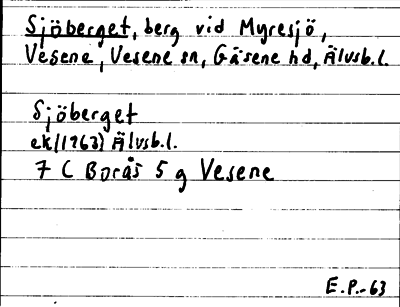 Sjöberget, berg vid Myresjö,
Vesene, Vesene sn, Gäsene hd, Älvsb.l.
Sjöberget
ek/(1963) Älvsb.l.
7 C Borås 5 g Vesene
E.P.-63